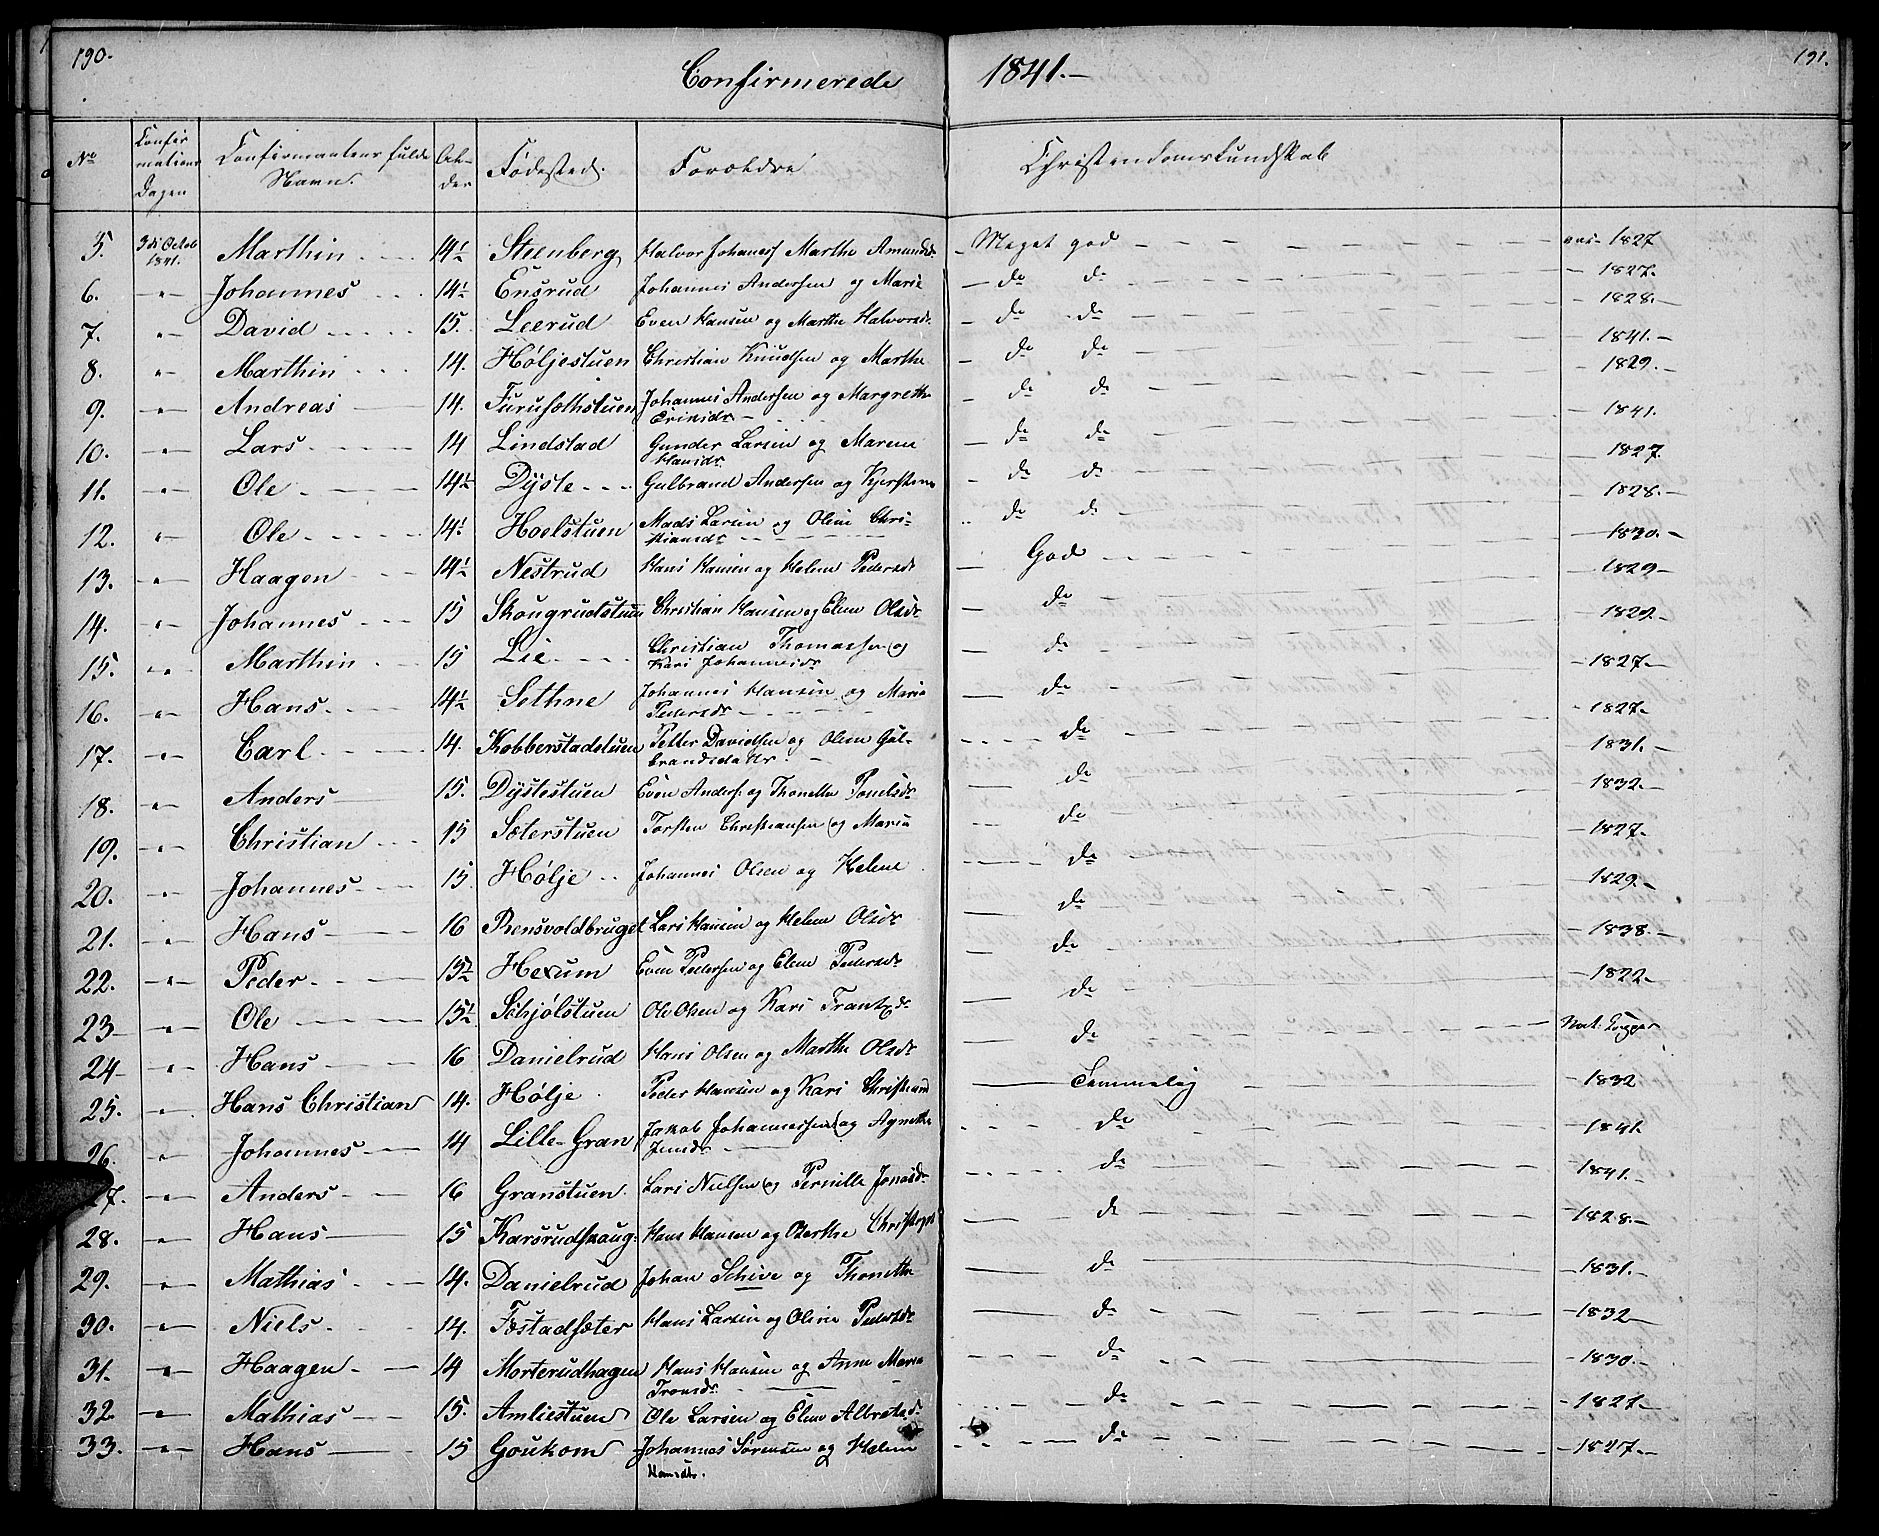 190.
Confirmerede 1841.-
191.
No Confirmations Dagen Confirmantens fulde Navn. Alder Fødested. Forældre Christendomskundskab
5. 3die Octob 1841. Marthin 14½ Steenberg Halvor Johanes Marthe Amundsdr - Meget god vac. 1827
6. -"- Johannes 14½ Ensrud Johannes Andersen og Marie do do - 1827.
7. -"- David 15. Leerud Even Hansen og Marthe Halvorsdr. do do - 1828.-
8. -"- Marthin 14. Høljestuen Christian Knudsen og Marthe do do 1841.-
9. -"- Andreas 14. Furusethstuen Johannes Andersen og Margrethe Ericsdr - do do - 1829.-
10. -"- Lars 14 Lindstad Gunder Larsen og Maren Hansdr do do - 1841.
11. -"- Ole 14½ Dyste Gulbrand Andersen og Kjerstine do do - 1827
12. -"- Ole 14½ Hoelstuen Mads Larsen og Oline Christiansdr do do - 1828.-
13. -"- Haagen 14½ Nestrud Hans Hansen og Helene Pedersdr God - 1830.-
14. -"- Johannes 15 Skougrudstuen Christian Hansen og Elene Olsdr do - 1829-
15. -"- Marthin 15 Lie Christian Thomassen og Kari Johannesdr do 1829.-
16. -"- Hans 14½ Sethne Johannes Hansen og Maria Pedersdr do - 1827.-
17. -"- Carl 14. Kobberstadstuen Petter Davidsen og Olene Gulbrandsdatter. do - 1827.-
18. -"- Anders 15. Dystestuen Even Anders. og Thonette Poulsdr do - 1831.-
19. -"- Christian 15 Sæterstuen Torsten Christiansen og Maria do - 1832.-
20. -"- Johannes 15 Hølje Johannes Olsen og Helene do - 1827.-
21. -"- Hans 16 Rensvoldbruget Lars Hansen og Helene Olsdr do - 1829.-
22. -"- Peder 15½ Hexum Even Pedersen og Elene Pedersdr do - 1838.-
23- -"- Ole 15½ Schjølstuen Ole Olsen og Kari Frantzdr do - 1822-
24- -"- Hans 16 Danielrud Hans Olsen og Marthe Olsdr do Nat. Kopper
25. -"- Hans Christian 14. Hølje Peder Hansen og Kari Christiansd Temmelig - 1832
26. -"- Johannes 14 Lille-Gran Jakob Johannessen og Agnethe Jensdr do - 1841
27. -"- Anders 16 Granstuen. Lars Nielsen og Pernille Jonasdr do - 1841.-
28. -"- Hans 15 Karsrudskoug. Hans Hansen og Berthe Christophd do - 1828.-
29. -"- Mathias 14. Danielrud Johan Schive og Thonette do - 1831.-
30. -"- Niels 14. Føstadsæter Hans Larsen og Oline Pedersdr do - 1832-
31. -"- Haagen 14 Morterudhagen Hans Hansen og Anne Maria Tronsdr do - 1830.-
32 -"- Mathias 15. Amliestuen Ole Larsen og Elene Albretsdr do - 1827.-
33. -"- Hans 15 Goukom Johannes Sørensen og Helene Hansdtr. do - 1827.-